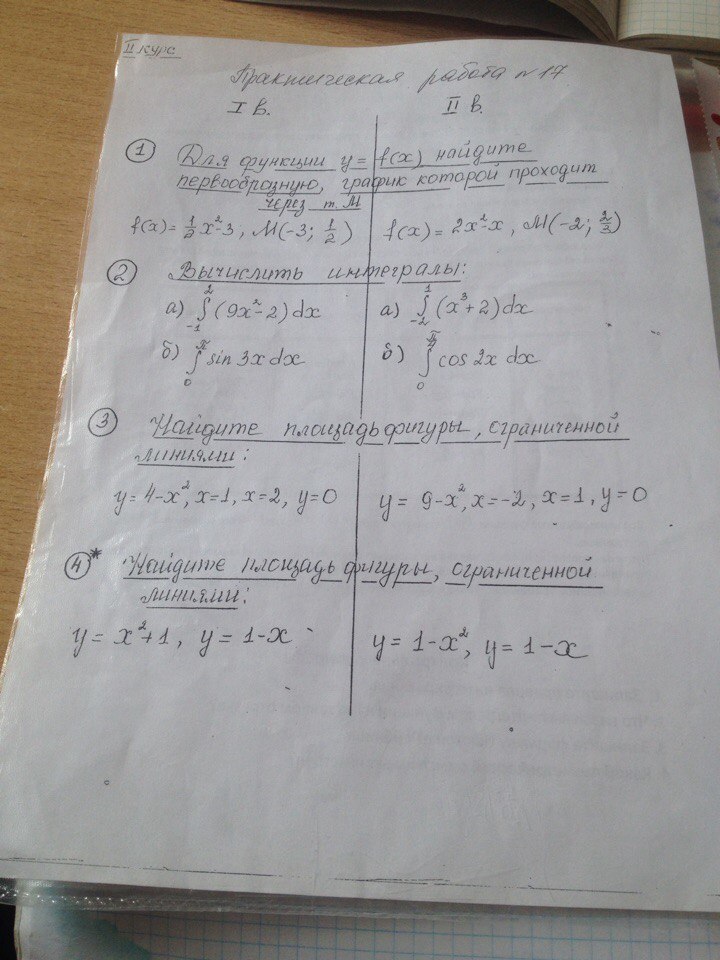 II курс
Практическая работа №17
I в. II в.
1 Для функции y = f(x) найдите
первообразную, график которой проходит
через т. M
f(x) = 1/2 x² - 3, M(-3; 1/2) f(x) = 2x² - x, M(-2; 2/3)
2 Вычислить интегралы:
а) ∫₋₁² (9x² - 2) dx а) ∫₋₂¹ (x³ + 2) dx
б) ∫₀^π sin 3x dx б) ∫₀^(π/4) cos 2x dx
3 Найдите площадь фигуры, ограниченной
линиями:
y = 4 - x², x = 1, x = 2, y = 0 y = 9 - x², x = -2, x = 1, y = 0
4* Найдите площадь фигуры, ограниченной
линиями:
y = x² + 1, y = 1 - x y = 1 - x², y = 1 - x